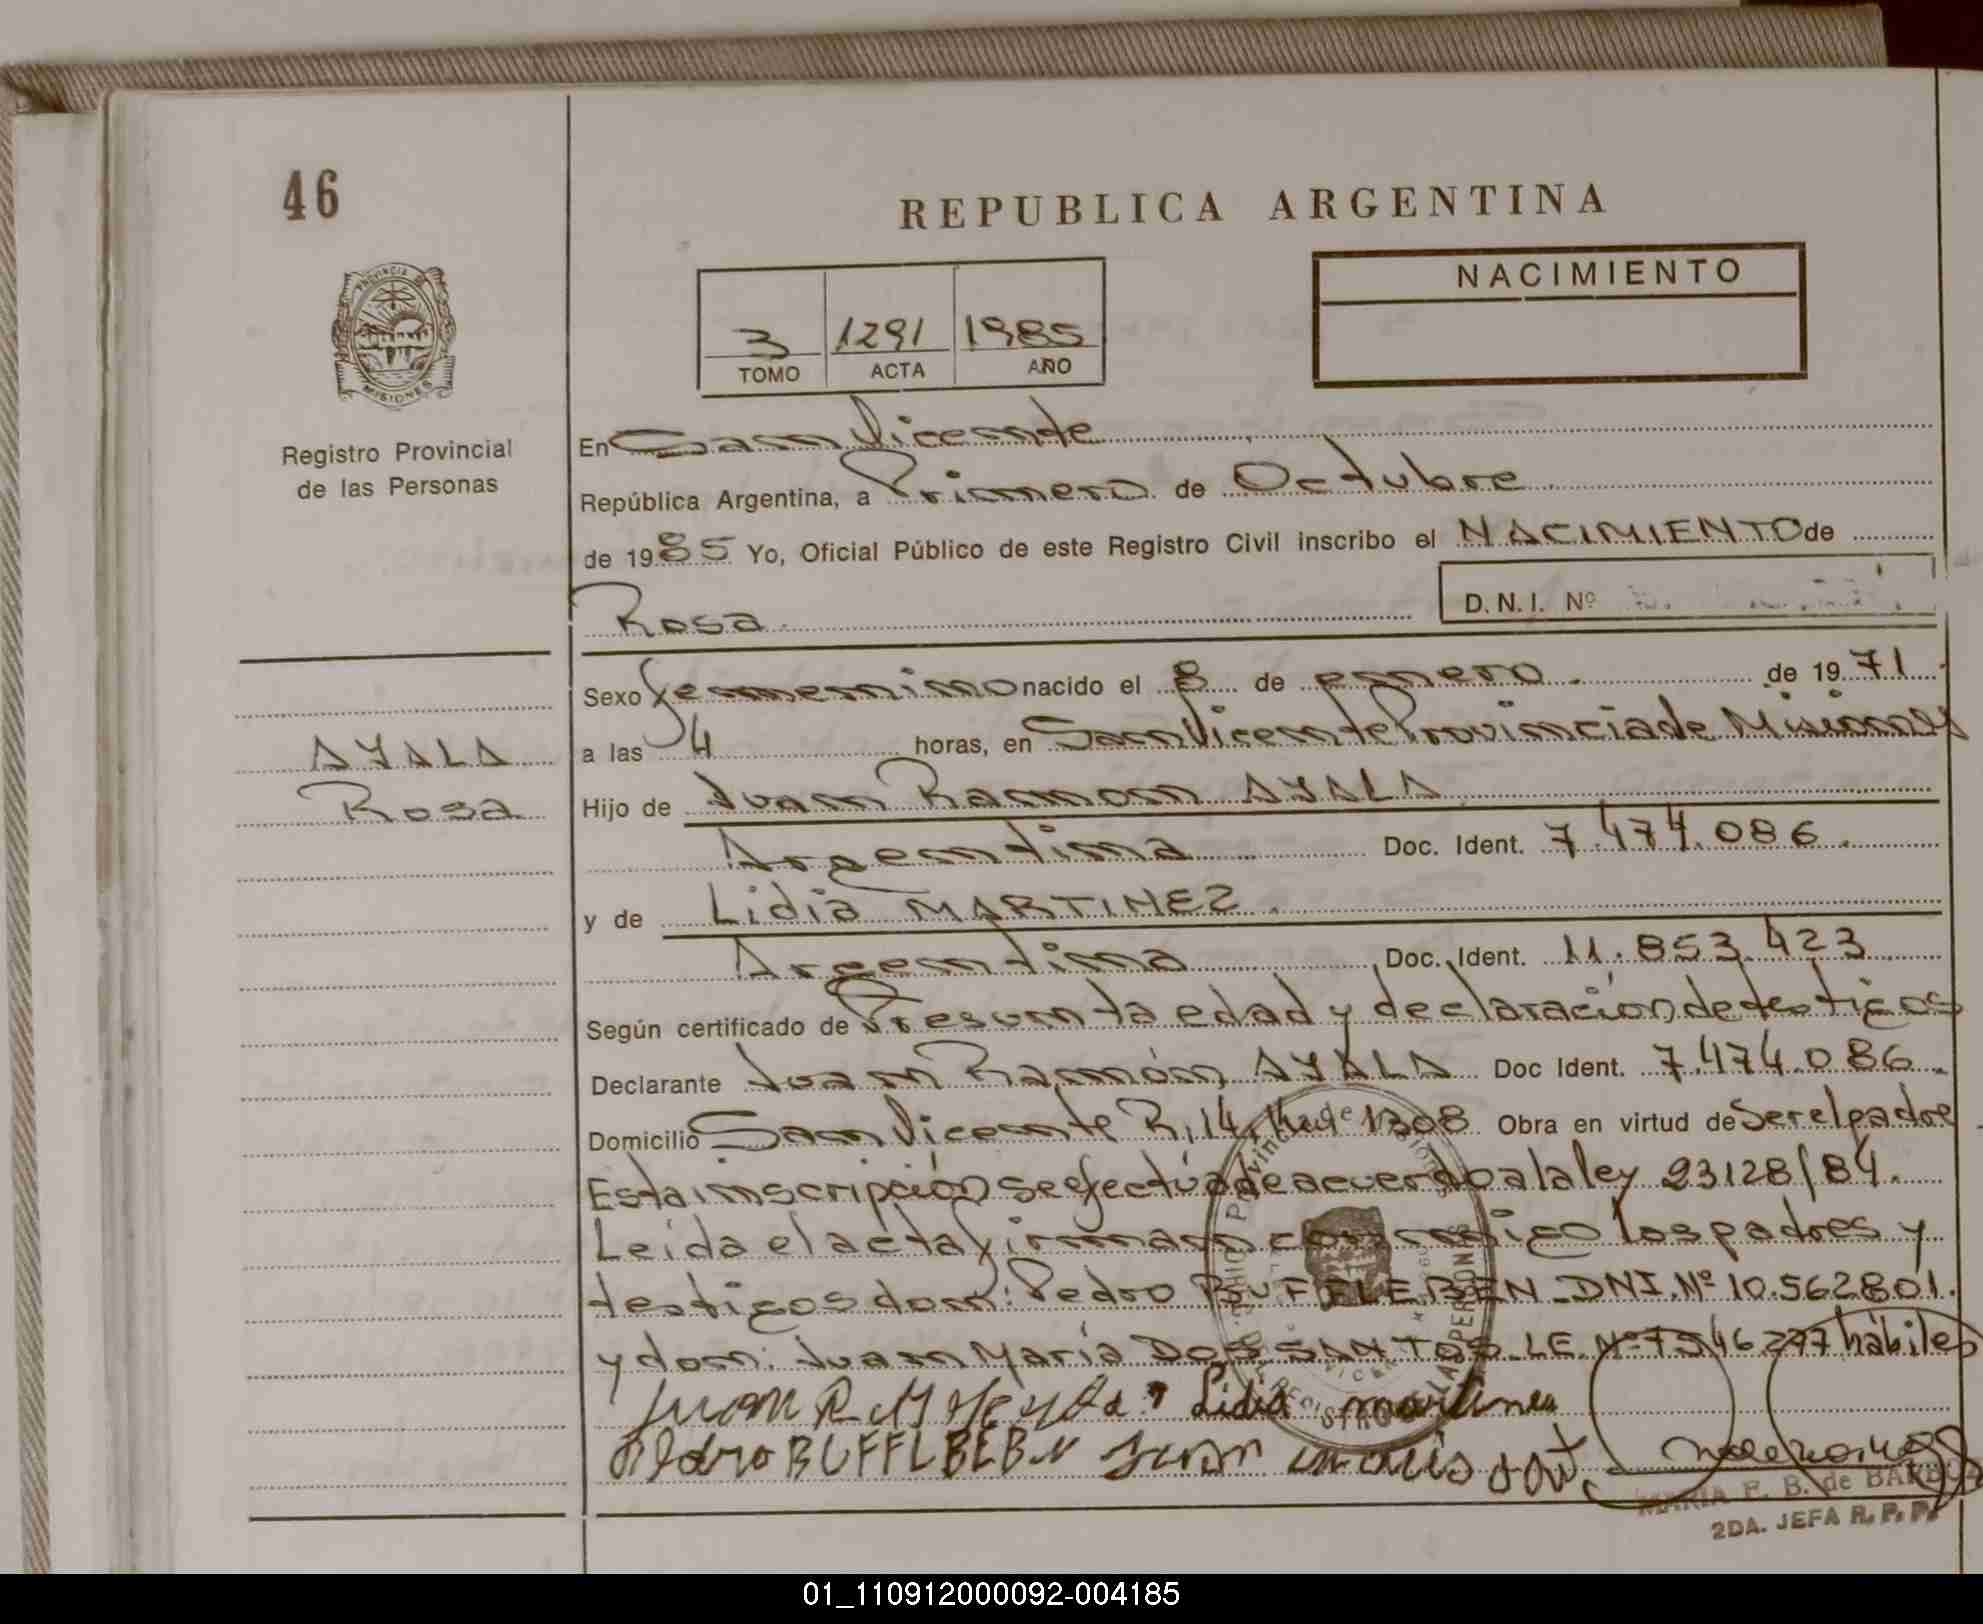 46
REPUBLICA ARGENTINA
NACIMIENTO
3 1291 1985
TOMO ACTA AÑO
PROVINCIA DE
MISIONES
Registro Provincial
de las Personas
En San Vicente
República Argentina, a Primero de Octubre
de 1985 Yo, Oficial Público de este Registro Civil inscribo el NACIMIENTO de
Rosa D.N.I. Nº
Sexo femenino nacido el 8 de enero de 1971
AYALA
Rosa
a las 4 horas, en San Vicente Provincia de Misiones
Hijo de Juan Ramon AYALA
Argentina Doc. Ident. 7.474.086
y de Lidia MARTINEZ
Argentina Doc. Ident. 11.853.423
Según certificado de Presunta edad y declaración de testigos
Declarante Juan Ramón AYALA Doc Ident. 7.474.086
Domicilio San Vicente R, 14, 1308 Obra en virtud de Ser el padre
Esta inscripción se efectúa de acuerdo a la ley 23128/84.
Leída el acta firman conmigo los padres y
testigos don: Pedro BUFFLEBEN DNI. Nº 10.562801.
y don: Juan María DOS SANTOS LE Nº 7546277 hábiles
Juan R Lidia martines
Pedro BUFFLBEB Juan
MARIA F. B. de
2DA. JEFA R. P. P.
01_110912000092-004185